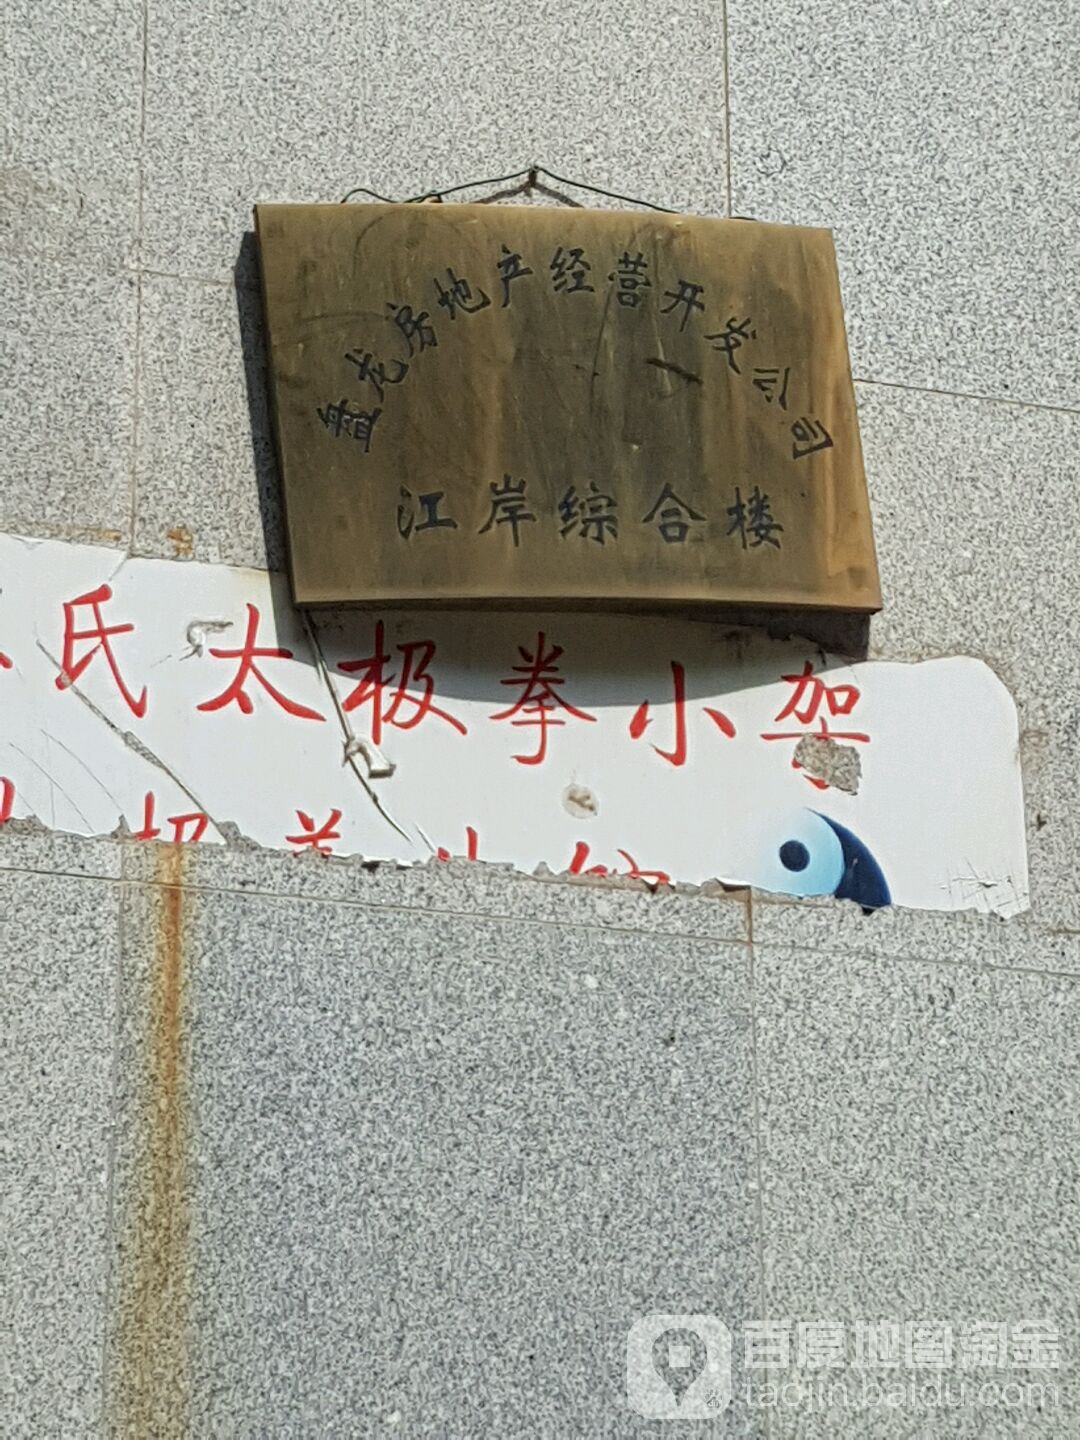 盘龙房地产经营开发公司
江岸综合楼
氏太极拳小架
百度地图淘金
taojin.baidu.com